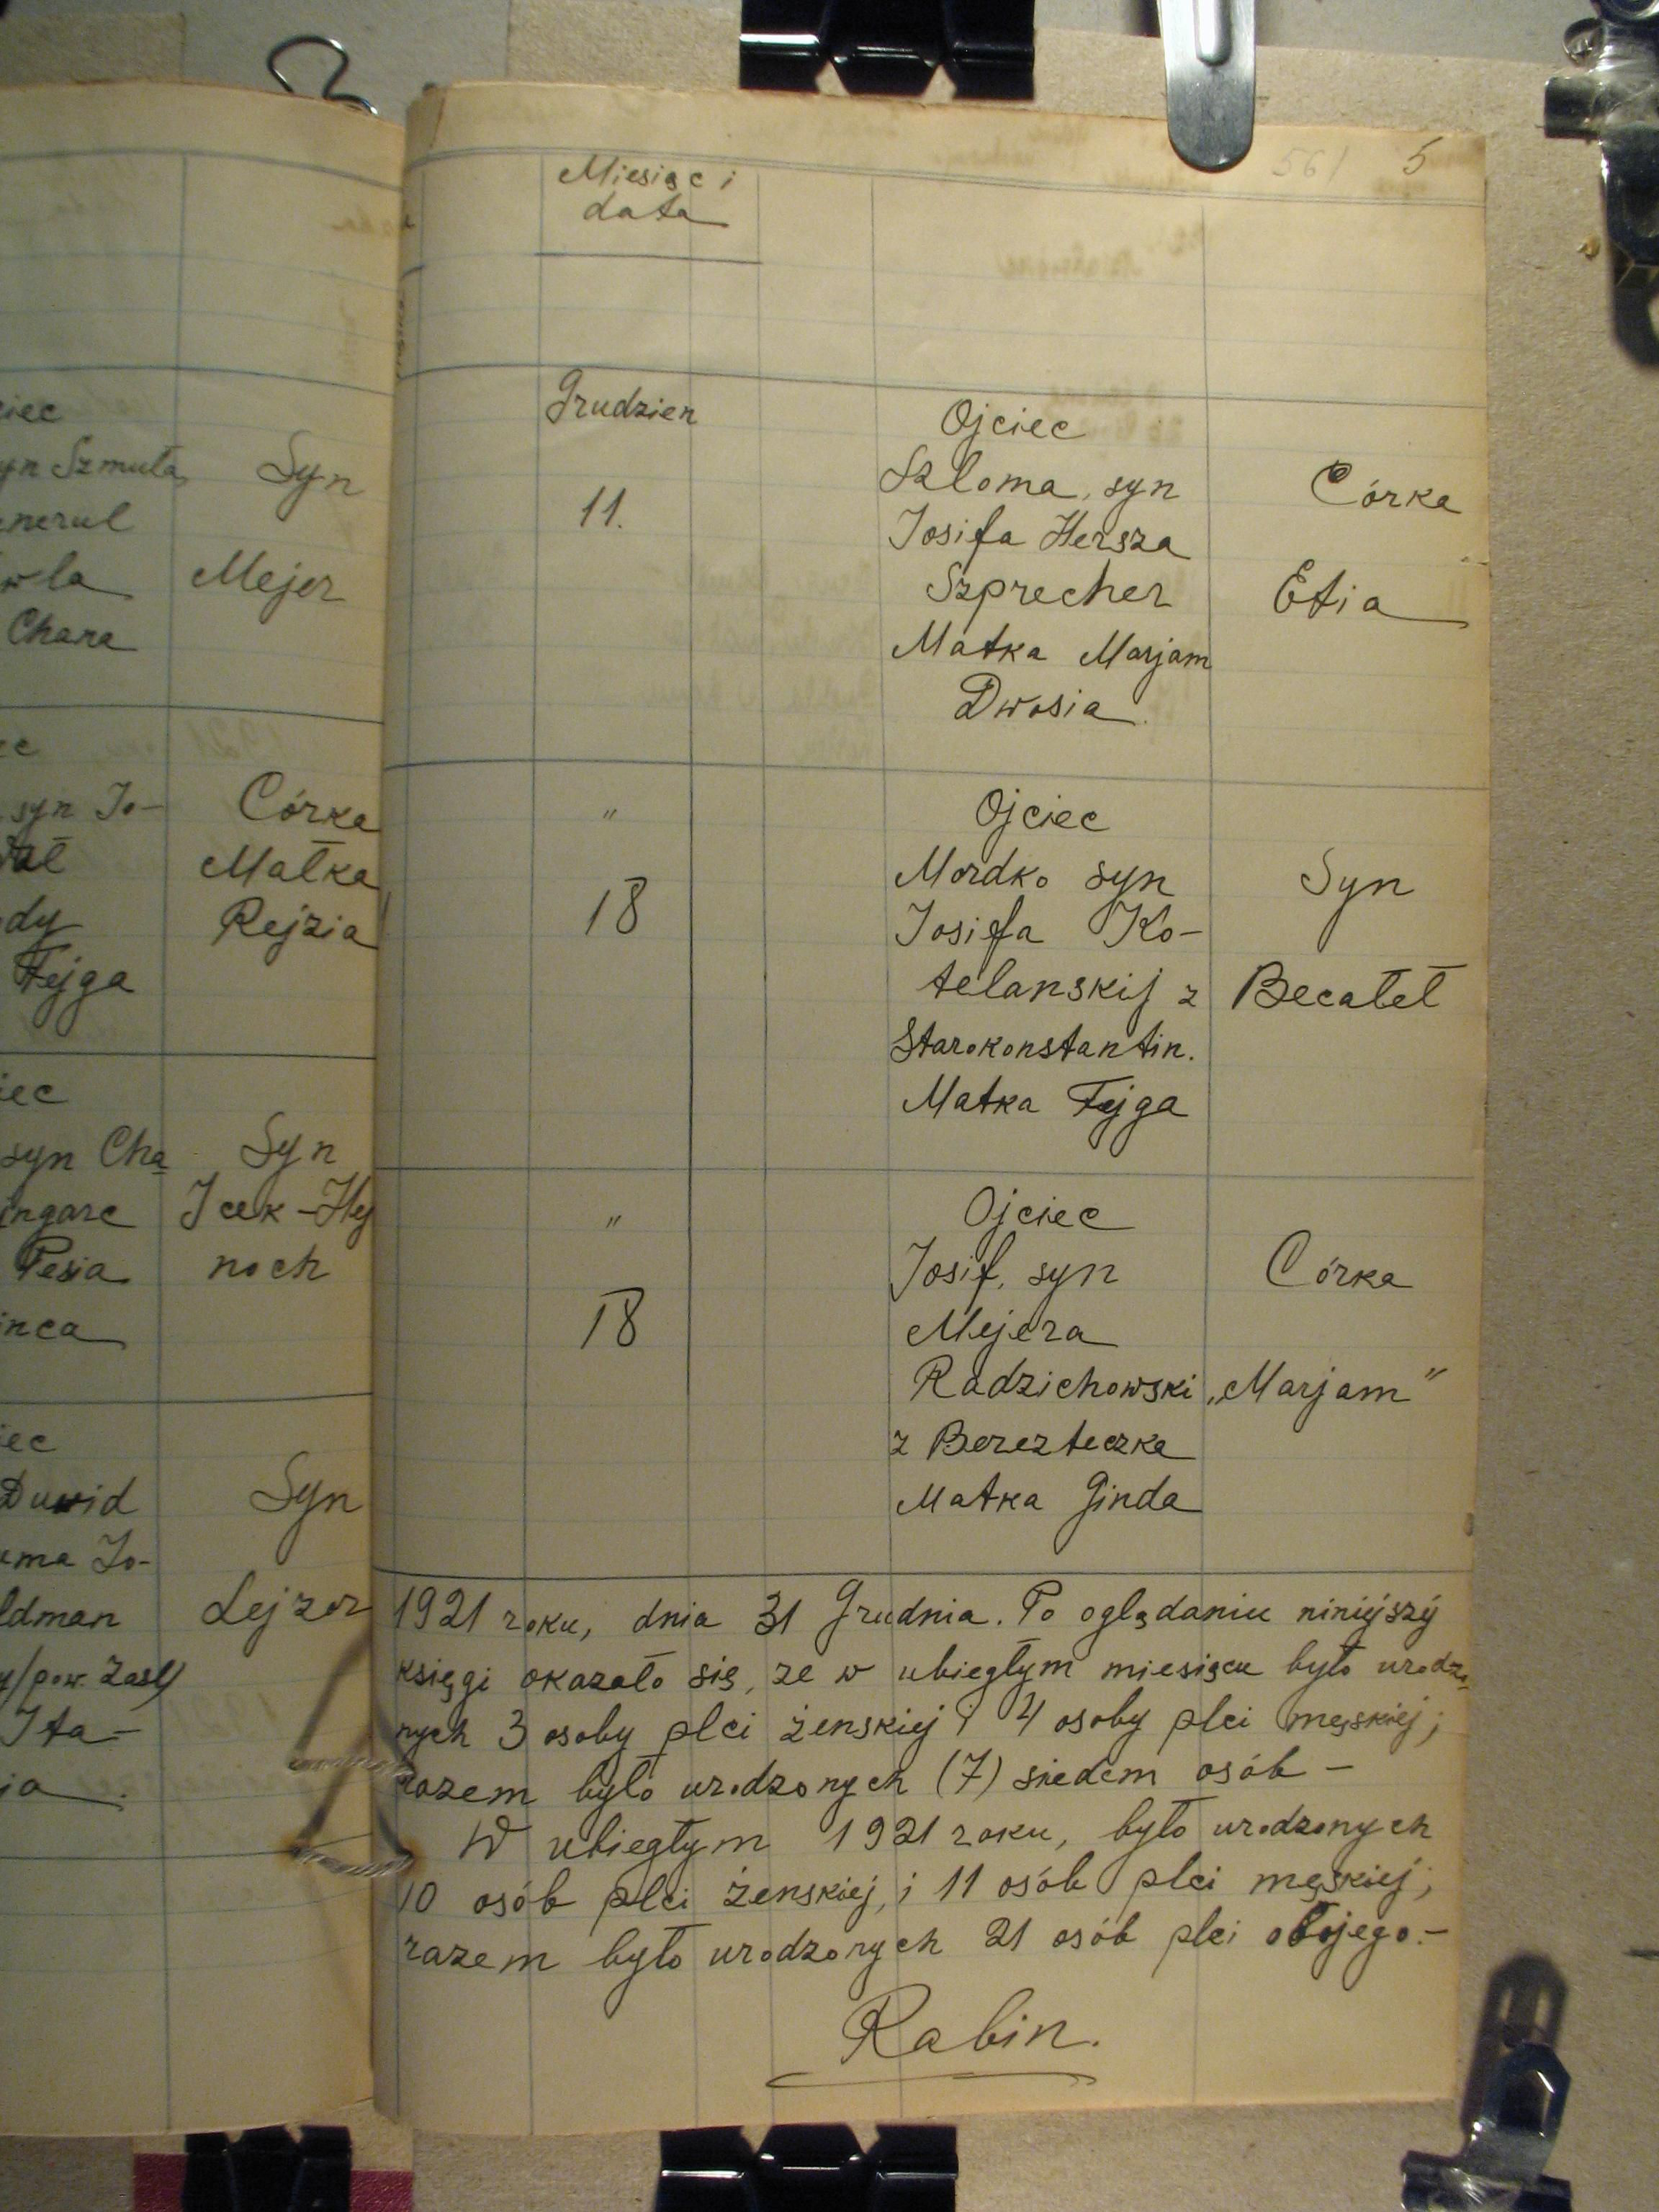 Syn Szmula
Syn
Mejer
Chana
syn Jo-
Córka
Małka
Rejzia
Fejga
syn Cha
Syn
Icek-Hej
noch
Pesia
Duwid
Syn
ldman
Lejzor
Ita-
561 5
Miesiąc i
data
Grudzien
11.
Ojciec
Szloma, syn
Iosifa Hersza
Szprecher
Matka Marjam
Dwosia.
Córka
Etia
"
18
Ojciec
Mordko syn
Iosifa Ko-
telanskij z
Starokonstantin.
Matka Fejga
Syn
Becalel
"
18
Ojciec
Iosif, syn
Mejera
Radzichowski
z Berezteczka
Matka Ginda
Córka
„Marjam"
1921 roku, dnia 31 Grudnia. Po oglądaniu niniejszej
księgi okazało się, ze w ubiegłym miesiącu było urodzo-
nych 3 osoby plci żenskiej i 4 osoby plci męskiej;
razem było urodzonych (7) siedem osób -
W ubiegłym 1921 roku, było urodzonych
10 osób plci żenskiej, i 11 osób plci męskiej;
razem było urodzonych 21 osób plci obojego.-
Rabin.